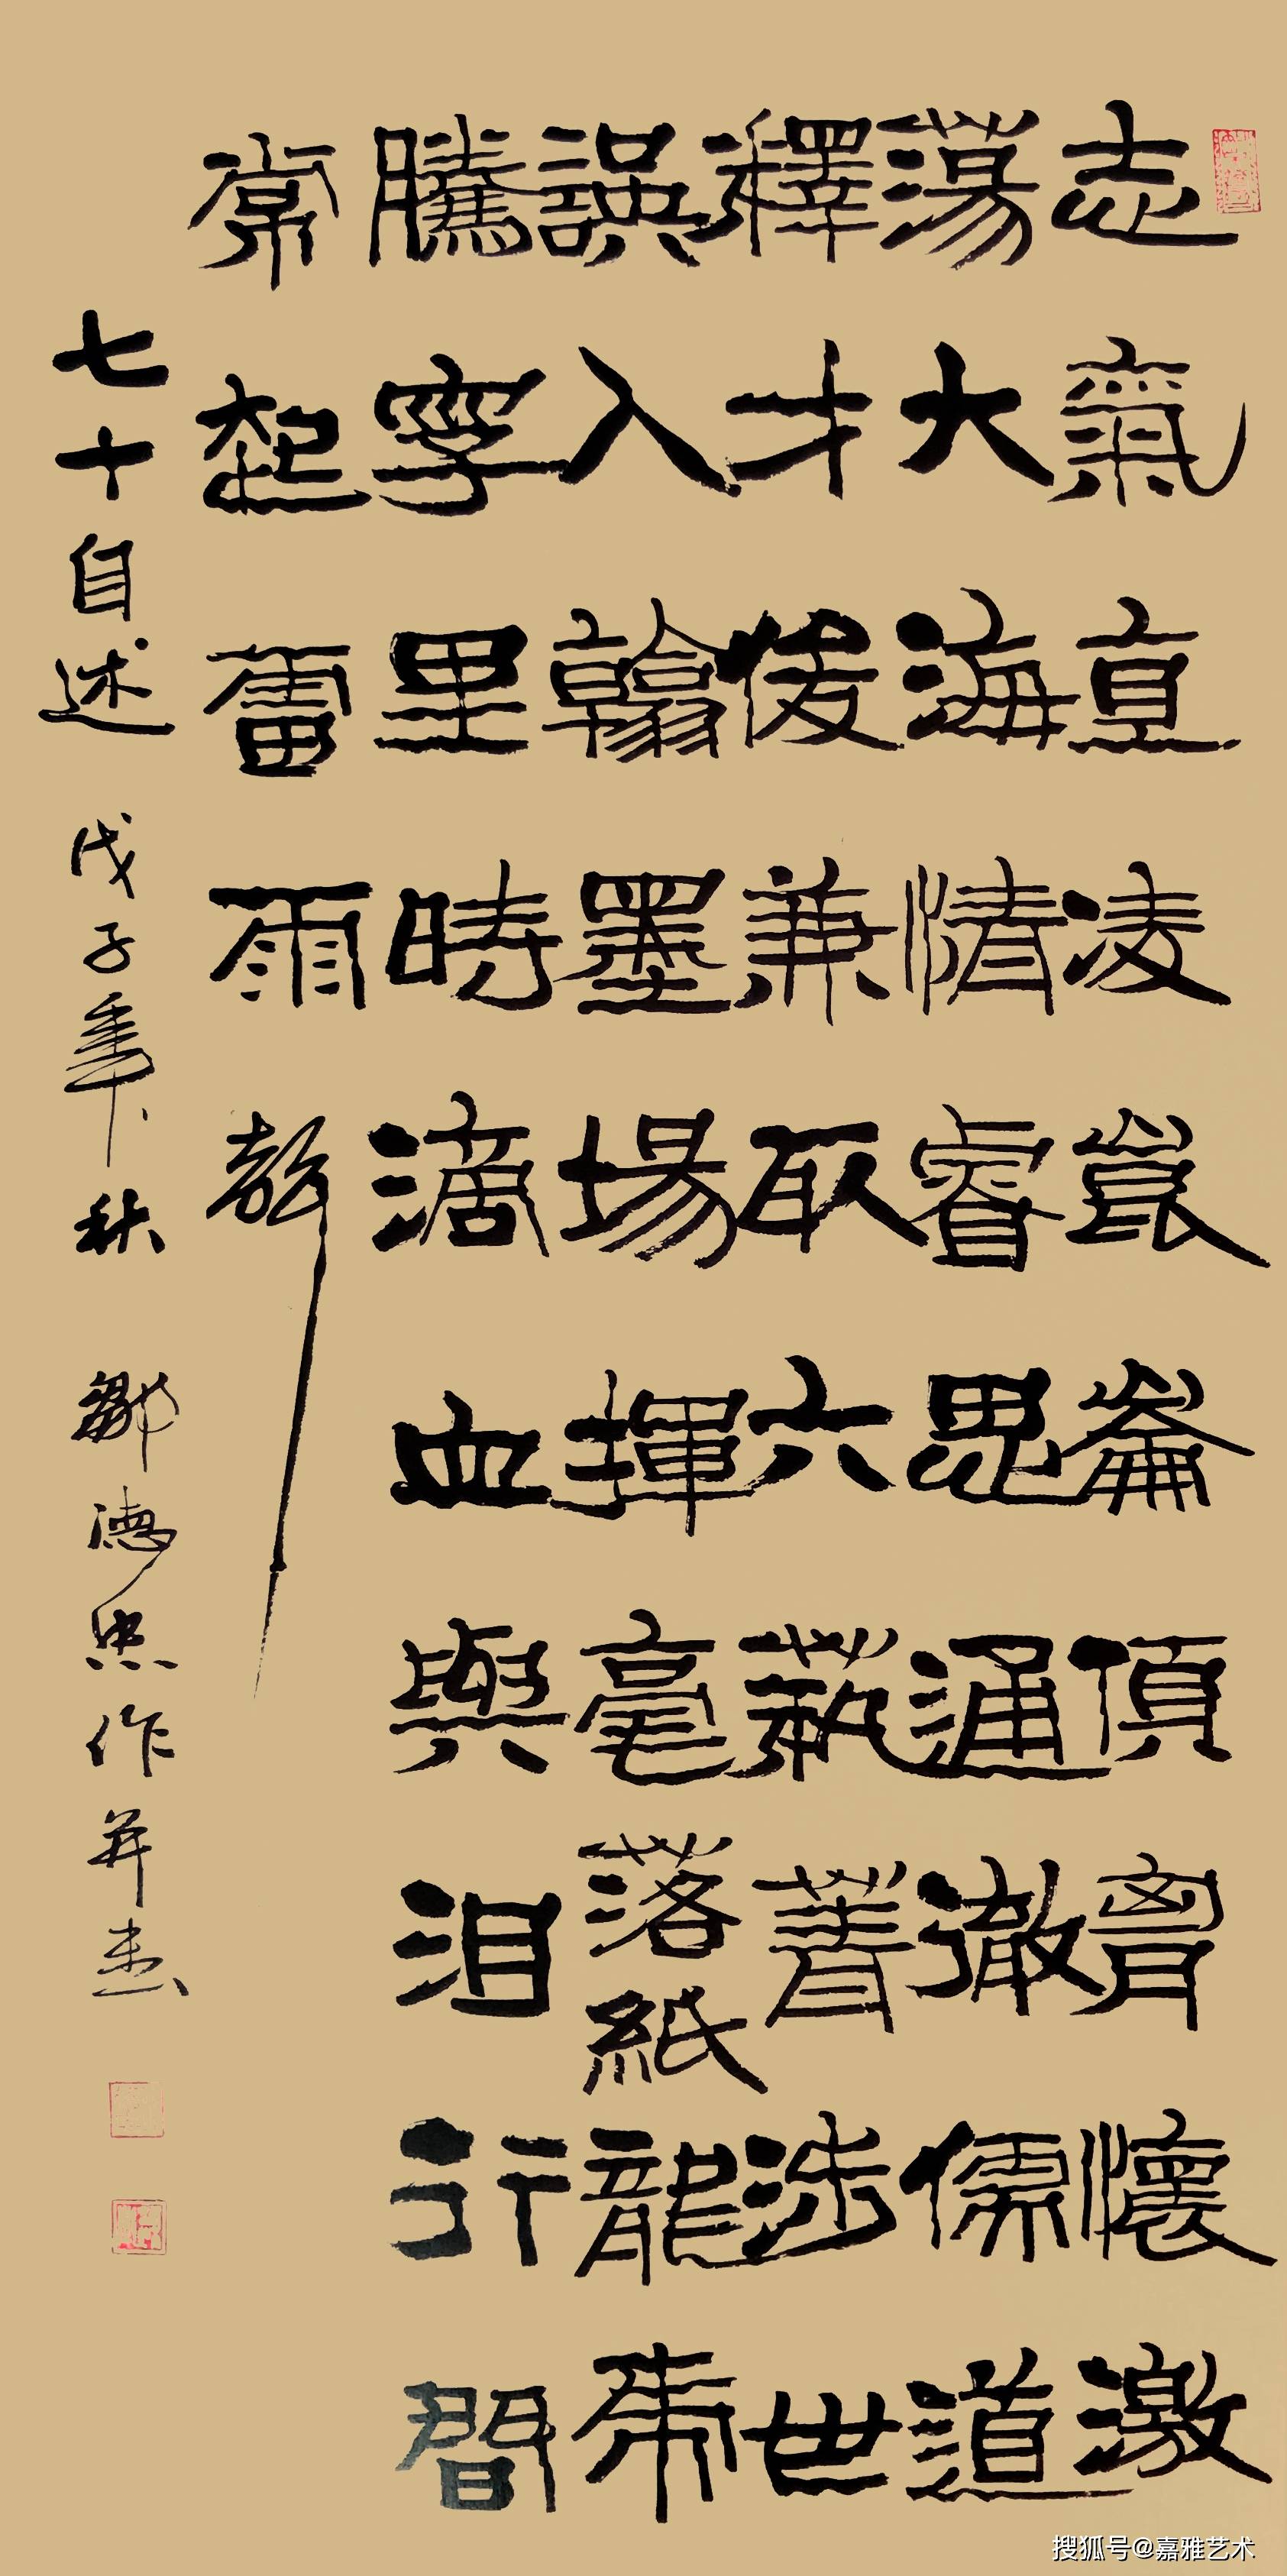 志氣直凌崑崙頂胷懷激
蕩大海情睿思通徹儒道
釋才俊兼取六蓺菁涉世
誤入翰墨場揮毫落紙龍
騰字里時滴血與泪行間
常起雷雨聲
七十自述 戊子年秋 鄒德忠作并書
搜狐号@嘉雅艺术